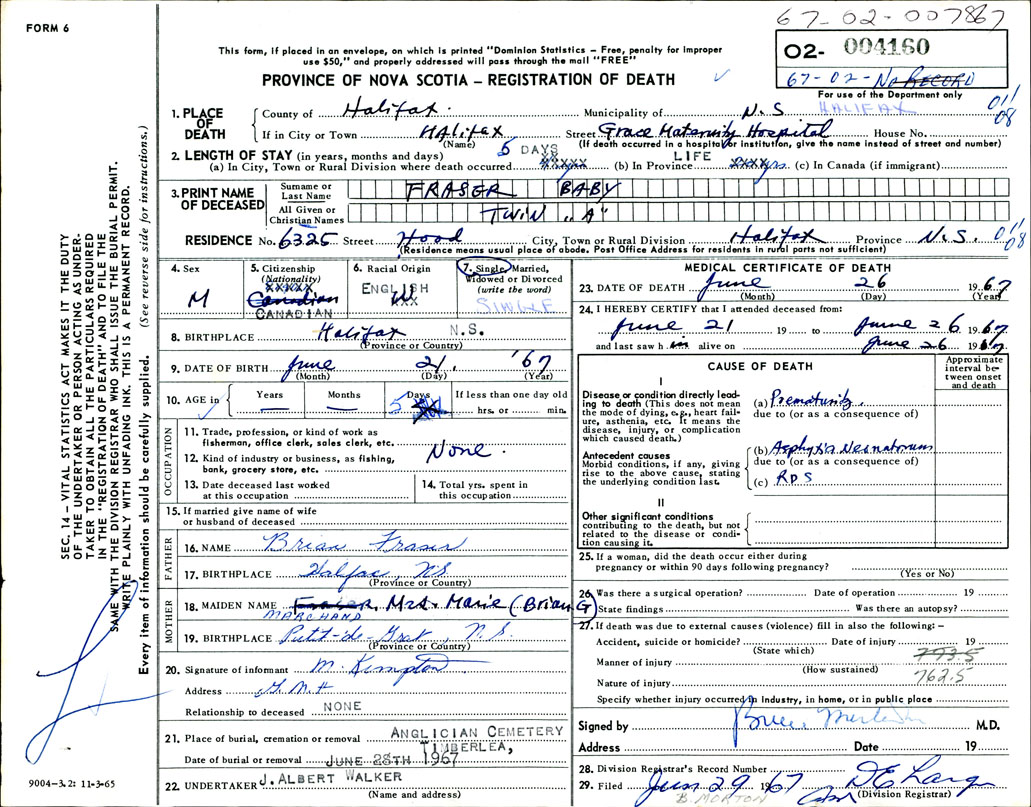 FORM 6
67-02-007867
This form, if placed in an envelope, on which is printed "Dominion Statistics – Free, penalty for improper
use $50," and properly addressed will pass through the mail "FREE"
PROVINCE OF NOVA SCOTIA – REGISTRATION OF DEATH
02- 004160
67-02-No RECORD
For use of the Department only
HALIFAX
011
08
1. PLACE OF DEATH
County of Halifax. Municipality of N.S
If in City or Town HAlifax Street Grace Maternity Hospital House No.
(Name) (If death occurred in a hospital or institution, give the name instead of street and number)
2. LENGTH OF STAY (in years, months and days)
5 DAYS LIFE
(a) In City, Town or Rural Division where death occurred (b) In Province yrs. (c) In Canada (if immigrant)
3. PRINT NAME OF DECEASED
Surname or Last Name FRASER BABY
All Given or Christian Names TWIN "A"
RESIDENCE No. 6325 Street Hood City, Town or Rural Division Halifax Province N.S. 011
08
(Residence means usual place of abode. Post Office Address for residents in rural parts not sufficient)
4. Sex
M
5. Citizenship
(Nationality)
XXXXX
Canadian
CANADIAN
6. Racial Origin
ENGLISH
W
XXX
7. Single, Married,
Widowed or Divorced
(write the word)
SINGLE
8. BIRTHPLACE Halifax N.S.
(Province or Country)
9. DATE OF BIRTH June 21, '67
(Month) (Day) (Year)
10. AGE in
Years Months Days If less than one day old
— — 5 hrs. or min.
OCCUPATION
11. Trade, profession, or kind of work as
fisherman, office clerk, sales clerk, etc.
None.
12. Kind of industry or business, as fishing,
bank, grocery store, etc.
13. Date deceased last worked
at this occupation
14. Total yrs. spent in
this occupation
15. If married give name of wife
or husband of deceased
FATHER
16. NAME Brian Fraser
17. BIRTHPLACE Halifax, NS
(Province or Country)
MOTHER
18. MAIDEN NAME Fraser, Mrs. Marie (Brian G)
MARCHAND
19. BIRTHPLACE Petit-de-Grat, N.S.
(Province or Country)
20. Signature of informant M. Kempton
Address G.M.H
Relationship to deceased NONE
21. Place of burial, cremation or removal ANGLICIAN CEMETERY
TIMBERLEA,
Date of burial or removal JUNE 28TH 1967
22. UNDERTAKER J. ALBERT WALKER
(Name and address)
MEDICAL CERTIFICATE OF DEATH
23. DATE OF DEATH June 26 1967
(Month) (Day) (Year)
24. I HEREBY CERTIFY that I attended deceased from:
June 21 19 to June 26 1967
and last saw h im alive on June 26 1967
CAUSE OF DEATH
Approximate
interval be-
tween onset
and death
I
Disease or condition directly lead-
ing to death (This does not mean
the mode of dying, e.g., heart fail-
ure, asthenia, etc. It means the
disease, injury, or complication
which caused death.)
(a) Prematurity
due to (or as a consequence of)
Antecedent causes
Morbid conditions, if any, giving
rise to the above cause, stating
the underlying condition last.
(b) Asphyxia Neonatorum
due to (or as a consequence of)
(c) RDS
II
Other significant conditions
contributing to the death, but not
related to the disease or condi-
tion causing it.
25. If a woman, did the death occur either during
pregnancy or within 90 days following pregnancy?
(Yes or No)
26. Was there a surgical operation? Date of operation 19
State findings Was there an autopsy?
27. If death was due to external causes (violence) fill in also the following: –
Accident, suicide or homicide? Date of injury 19
(State which)
793.5
Manner of injury
(How sustained)
762.5
Nature of injury
Specify whether injury occurred in Industry, in home, or in public place
Signed by M.D.
Address Date 19
28. Division Registrar's Record Number
29. Filed Jun 29 1967
B. MORTON
(Division Registrar)
SEC. 14 – VITAL STATISTICS ACT MAKES IT THE DUTY
OF THE UNDERTAKER OR PERSON ACTING AS UNDER-
TAKER TO OBTAIN ALL THE PARTICULARS REQUIRED
IN THE "REGISTRATION OF DEATH" AND TO FILE THE
SAME WITH THE DIVISION REGISTRAR WHO SHALL ISSUE THE BURIAL PERMIT.
WRITE PLAINLY WITH UNFADING INK. THIS IS A PERMANENT RECORD.
Every item of information should be carefully supplied. (See reverse side for instructions.)
9004-3.2: 11-3-65